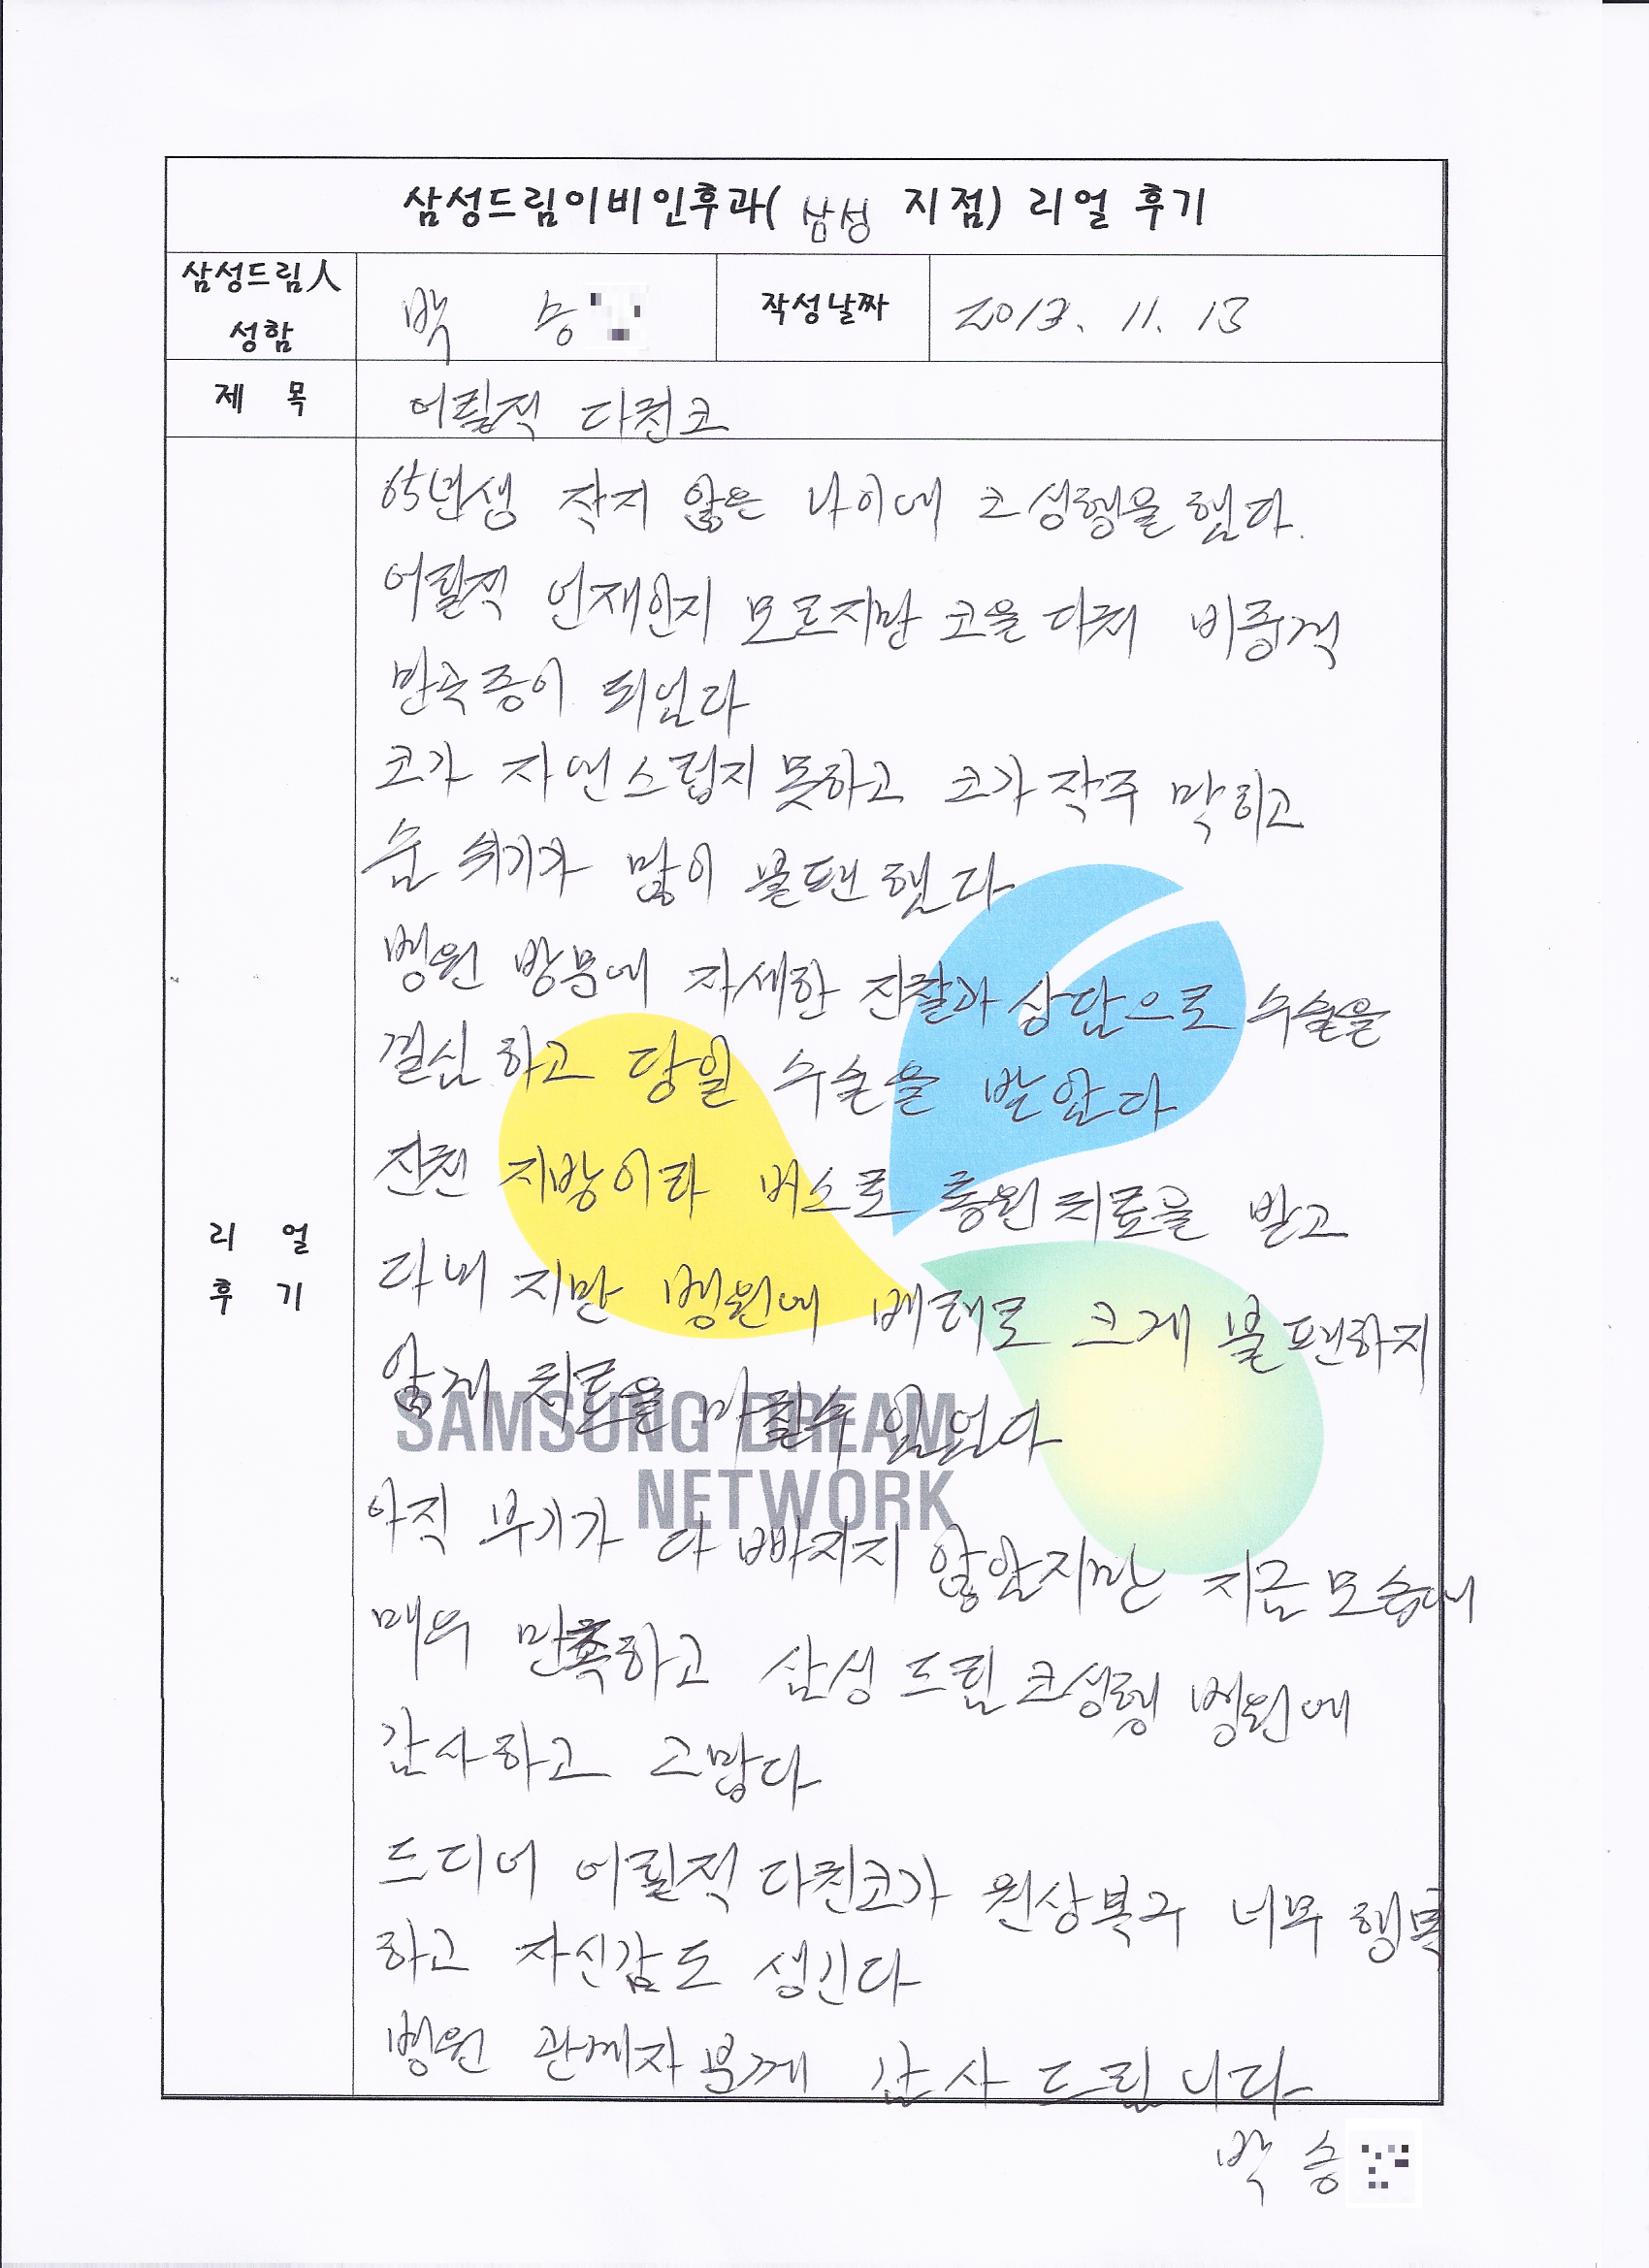 삼성드림이비인후과( 삼성 지점) 리얼 후기
삼성드림人
성함
박 승
작성날짜
2013. 11. 13
제 목
어릴적 다친코
65년생 작지 않은 나이에 코 성형을 했다.
어릴적 언재인지 모르지만 코을 다쳐 비중격
만곡증이 되었다
코가 자연스럽지 못하고 코가 작주 막히고
숨 쉬기가 많이 불편 했다
병원 방문에 자세한 진찰과 상담으로 수술을
결심 하고 당일 수술을 받았다
진천 지방이라 버스로 통원 치료을 받고
다녀 지만 병원에 배려로 크게 불편하지
않게 치료을 마칠수 있었다
SAMSUNG DREAM
NETWORK
아직 부기가 다 빠지지 않았지만 지금 모습에
매우 만족하고 삼성 드림 코성형 병원에
감사하고 고맙다
드디어 어릴적 다친코가 원상복구 너무 행복
하고 자신감도 생긴다
리 얼
후 기
병원 관계자 분께 감사 드립니다
박 승